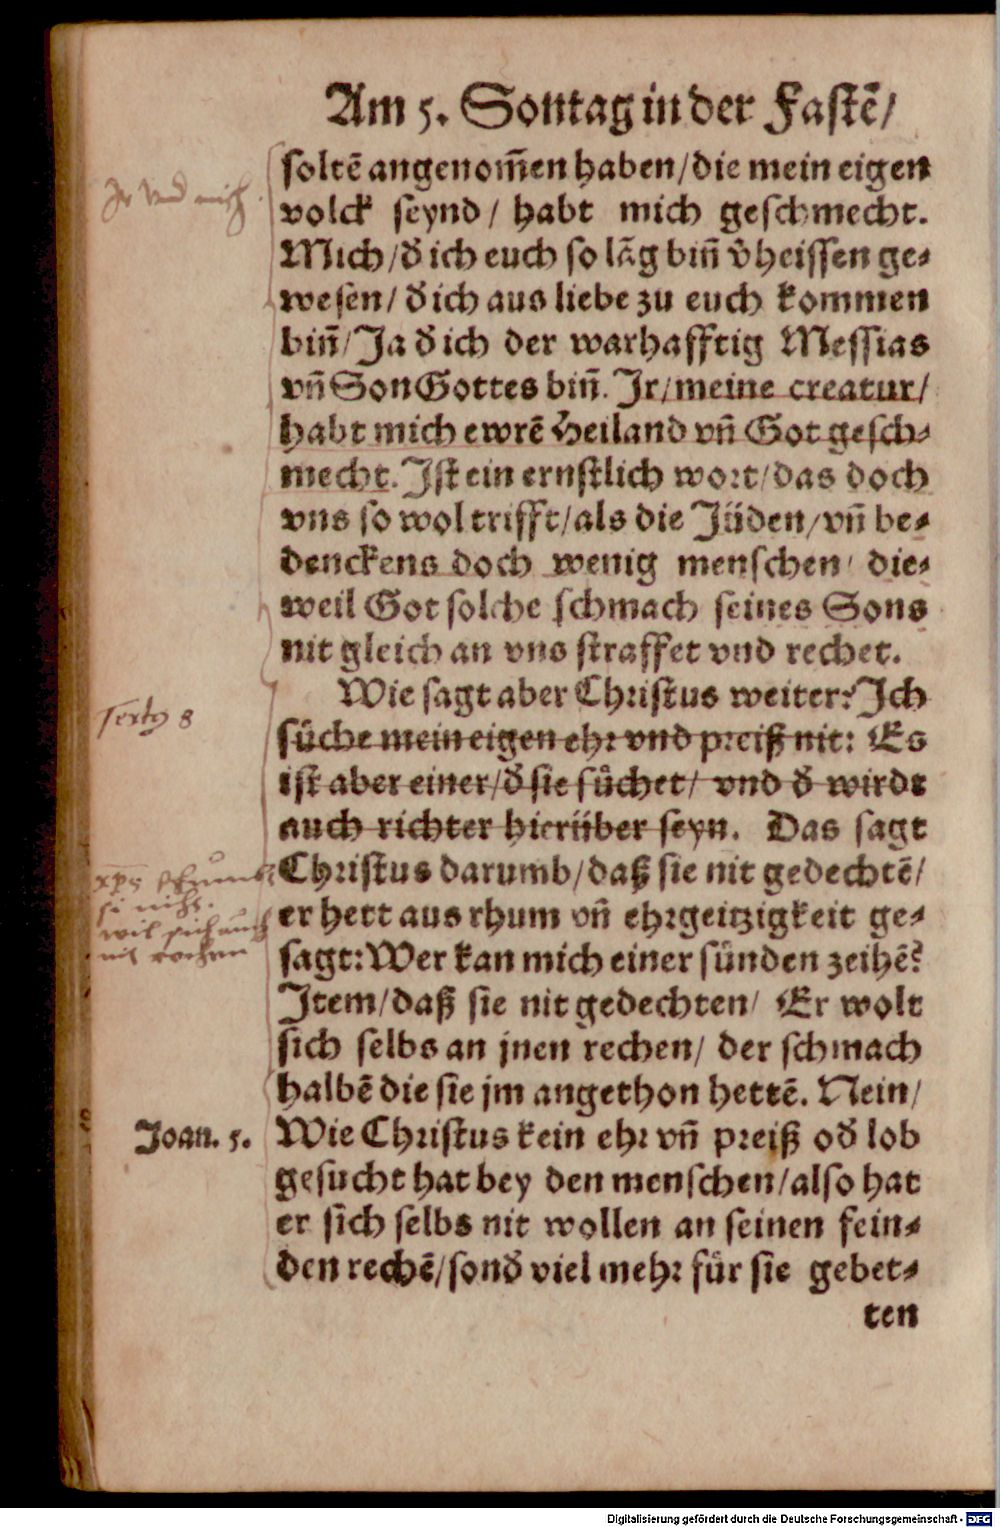 Am 5. Sontag in der Fastē/
soltē angenom̃en haben/die mein eigen
volck seynd/ habt mich geschmecht.
Mich/d̓ ich euch so lāg biñ v̓heissen ge⸗
wesen/ d̓ ich aus liebe zu euch kommen
biñ/Ja d̓ ich der warhafftig Messias
vñ Son Gottes biñ. Jr/meine creatur/
habt mich ewrē Heiland vñ Got gesch⸗
mecht. Jst ein ernstlich wort/das doch
vns so wol trifft/als die Jüden/vñ be⸗
denckens doch wenig menschen/ die⸗
weil Got solche schmach seines Sons
nit gleich an vns straffet vnd rechet.
Wie sagt aber Christus weiter? Jch
Textus 8
süche mein eigen ehr vnd preiß nit: Es
ist aber einer/d̓ sie süchet/ vnd d̓ wirdt
auch richter hierüber seyn. Das sagt
Christus darumb/daß sie nit gedechtē/
er hett aus rhum vñ ehrgeitzigkeit ge⸗
sagt: Wer kan mich einer sünden zeihē?
Jtem/daß sie nit gedechten/ Er wolt
sich selbs an jnen rechen/ der schmach
halbē die sie jm angethon hettē. Nein/
Joan. 5.
Wie Christus kein ehr vñ preiß od̓ lob
gesucht hat bey den menschen/also hat
er sich selbs nit wollen an seinen fein⸗
den rechē/sond̓ viel mehr für sie gebet⸗
ten
Digitalisierung gefördert durch die Deutsche Forschungsgemeinschaft - DFG